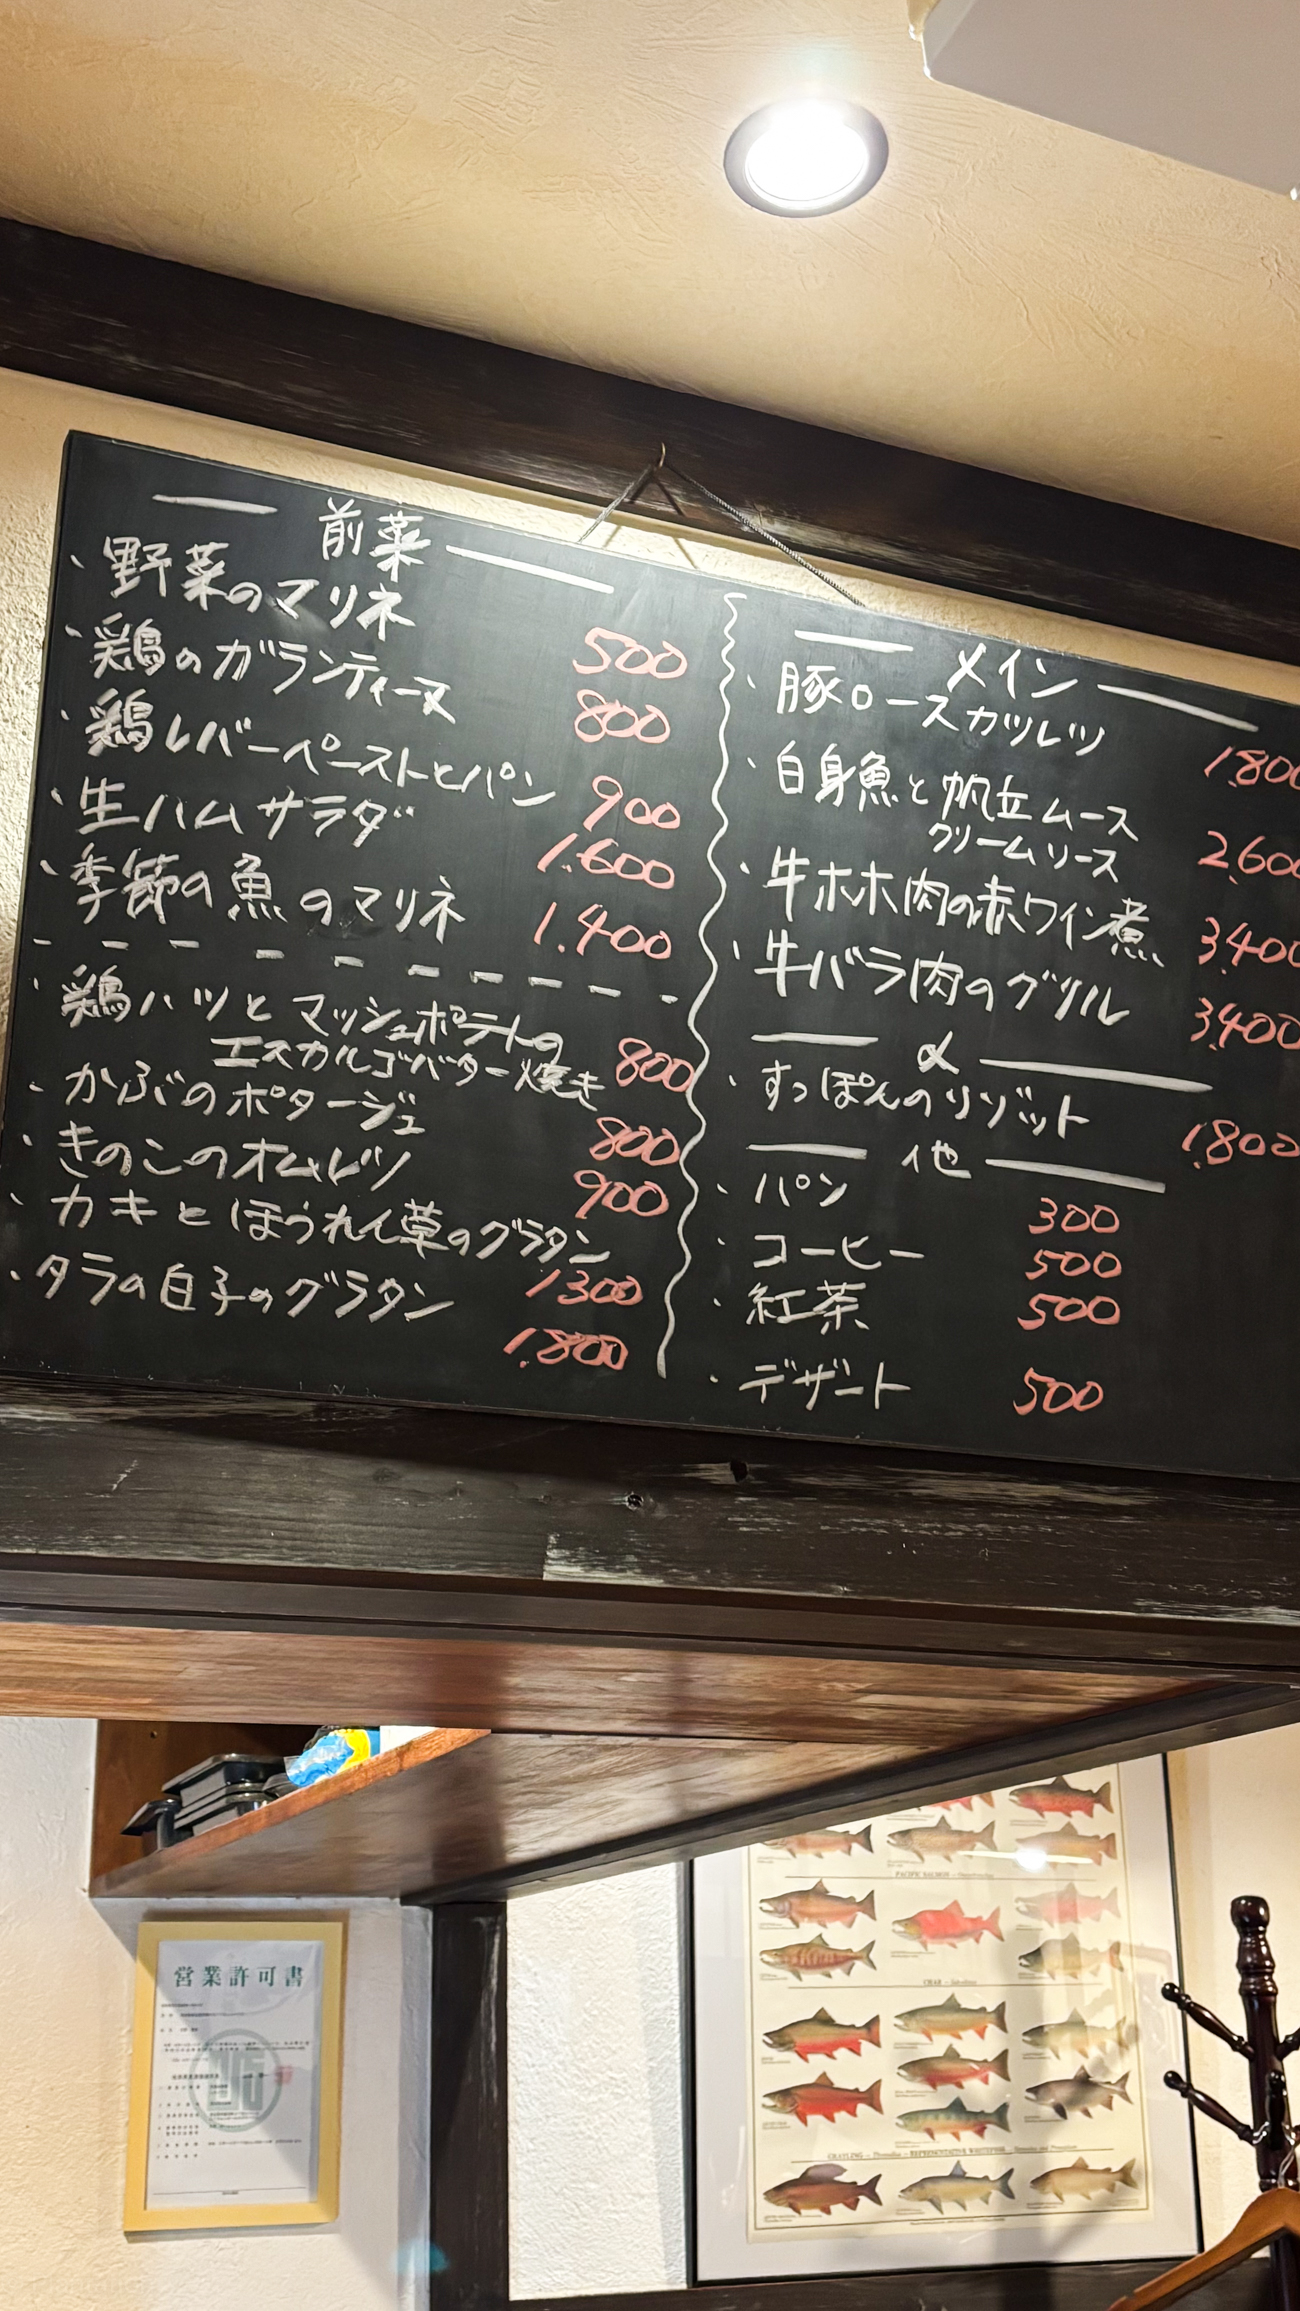 前菜
・野菜のマリネ 500
・鶏のガランティーヌ 800
・鶏レバーペーストとパン 900
・生ハムサラダ 1.600
・季節の魚のマリネ 1.400
・鶏ハツとマッシュポテトの
エスカルゴバター焼き 800
・かぶのポタージュ 800
・きのこのオムレツ 900
・カキとほうれん草のグラタン 1300
・タラの白子のグラタン 1.800
メイン
・豚ロースカツレツ 1.800
・白身魚と帆立ムース
クリームソース 2.600
・牛ホホ肉の赤ワイン煮 3.400
・牛バラ肉のグリル 3.400
〆
・すっぽんのリゾット 1.800
他
・パン 300
・コーヒー 500
・紅茶 500
・デザート 500
営業許可書
PACIFIC SALMON
CHAR
GRAYLING
REPRESENTATIVE WHITEFISH